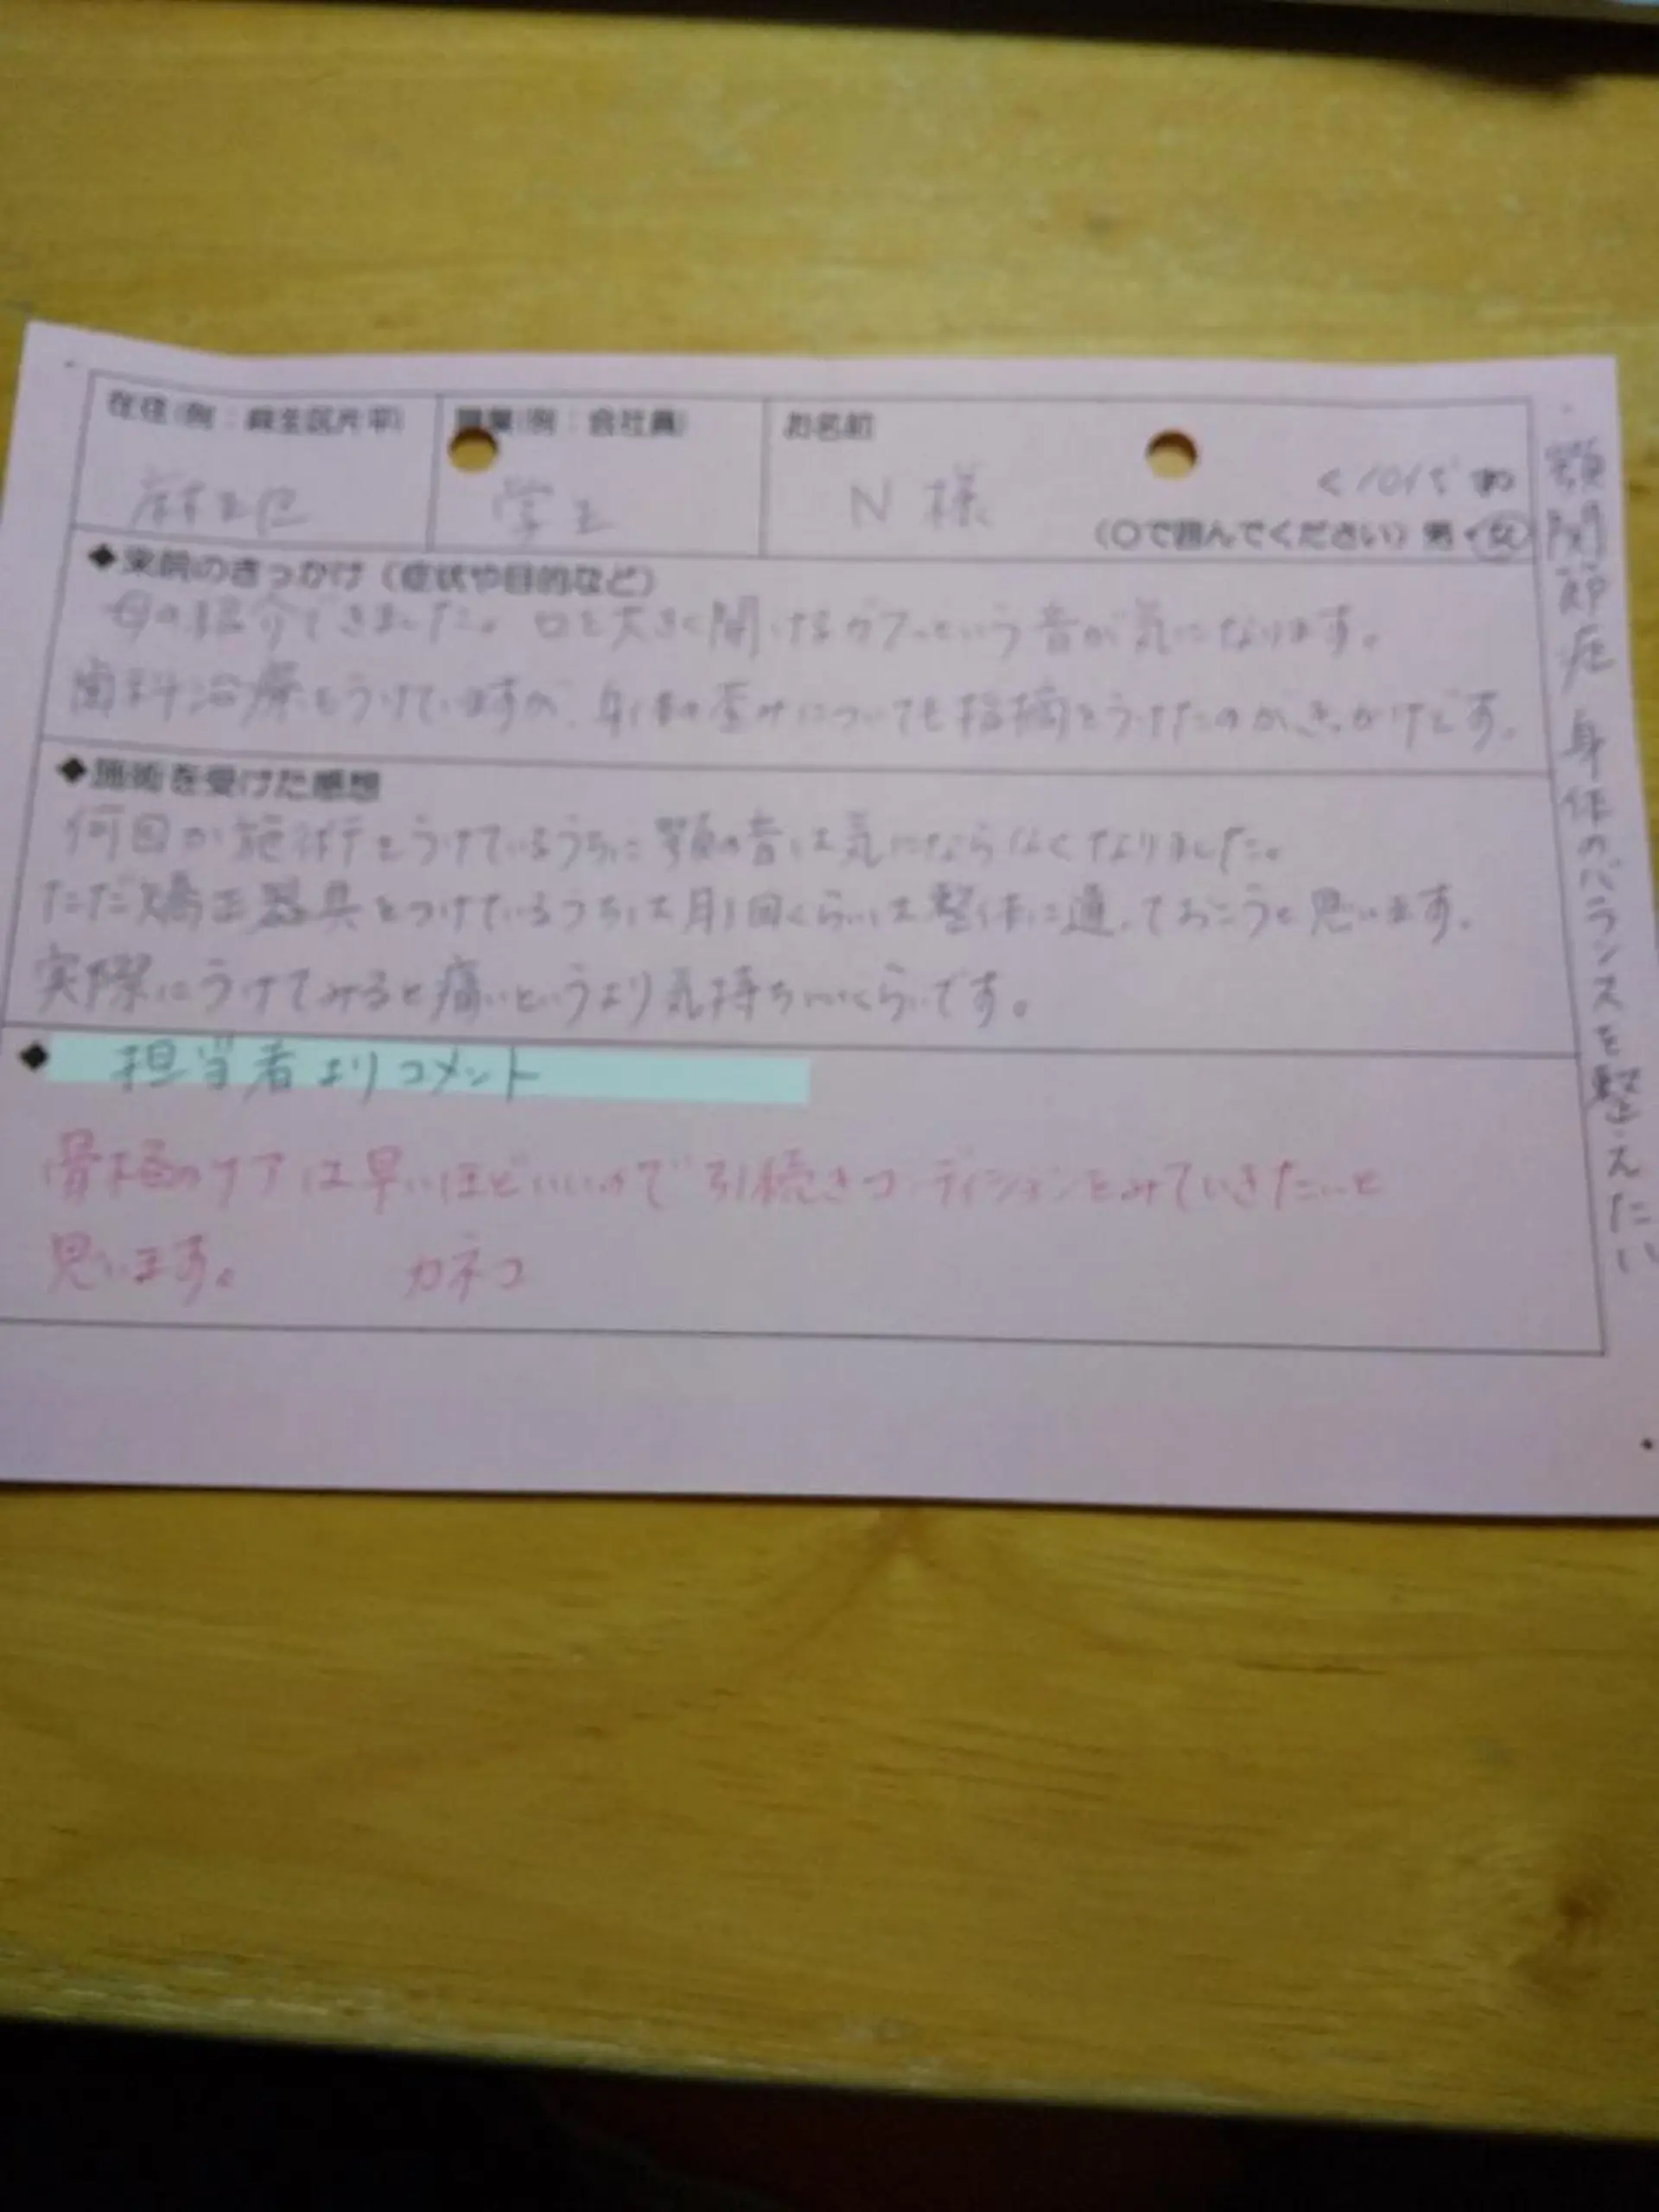 在住(例:麻生区片平) 職業(例:会社員) お名前
麻生区 学生 N 様 10代
(〇で囲んでください) 男・女
◆来院のきっかけ(症状や目的など)
母の紹介できました。口を大きく開けるとガクッという音が気になります。
歯科治療もうけていますが、身体の歪みについても指摘をうけたのがきっかけです。
◆施術を受けた感想
何回か施術をうけているうちに顎の音は気にならなくなりました。
ただ矯正器具をつけているうちは月1回くらいは整体に通っておこうと思います。
実際にうけてみると痛いというより気持ちいいくらいです。
◆担当者よりコメント
骨格のケアは早いほどいいので引続きコンディションをみていきたいと
思います。 カネコ
顎関節症 身体のバランスを整えたい